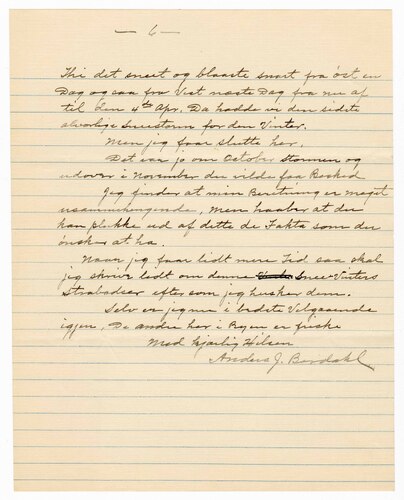 — 6 —
Thi det sneet og blaaste snart fra öst en
Dag og saa fra Vest næste Dag fra nu af
til den 4th Apr. Da hadde vi den sidste
alvorlige Sneestorm for den Vinter.
Men jeg faar slutte her.
Det var jo om October stormen og
udover i November du vilde faa Beskeed
Jeg finder at min Beretning er meget
usammenhengende, men haaber at du
kan plukke ud af dette de Fakta som du
önsker at ha.
Naar jeg faar lidt mere Tid saa skal
jeg skrive lidt om denne Snee-Vinters
Strabadser eftersom jeg husker dem.
Selv er jeg nu i bedste Velgaaende
igjen, De andre her i Byen er friske
Med kjærlig Hilsen
Anders J. Berdahl